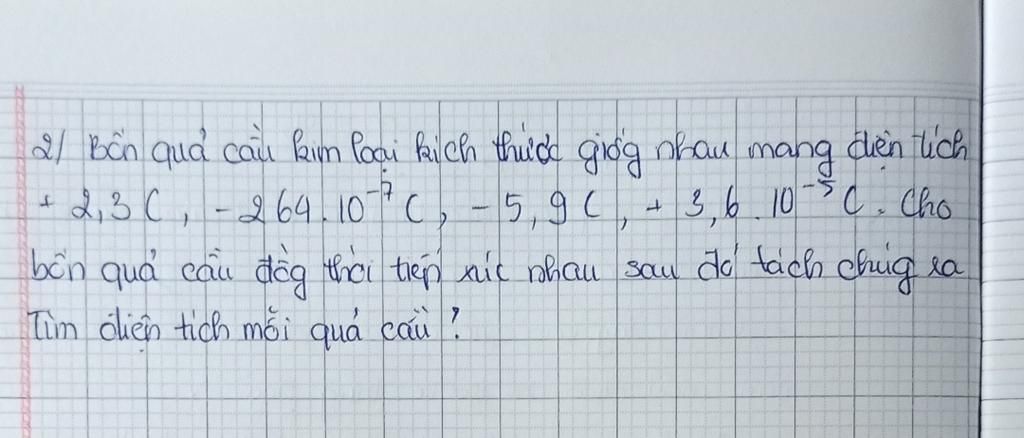 2/ Bốn quả cầu kim loại kích thước giống nhau mang điện tích
+ 2,3 C, - 264.10⁻⁷ C, - 5,9 C, + 3,6.10⁻⁵ C. Cho
bốn quả cầu đồng thời tiếp xúc nhau sau đó tách chúng ra
Tìm điện tích mỗi quả cầu?